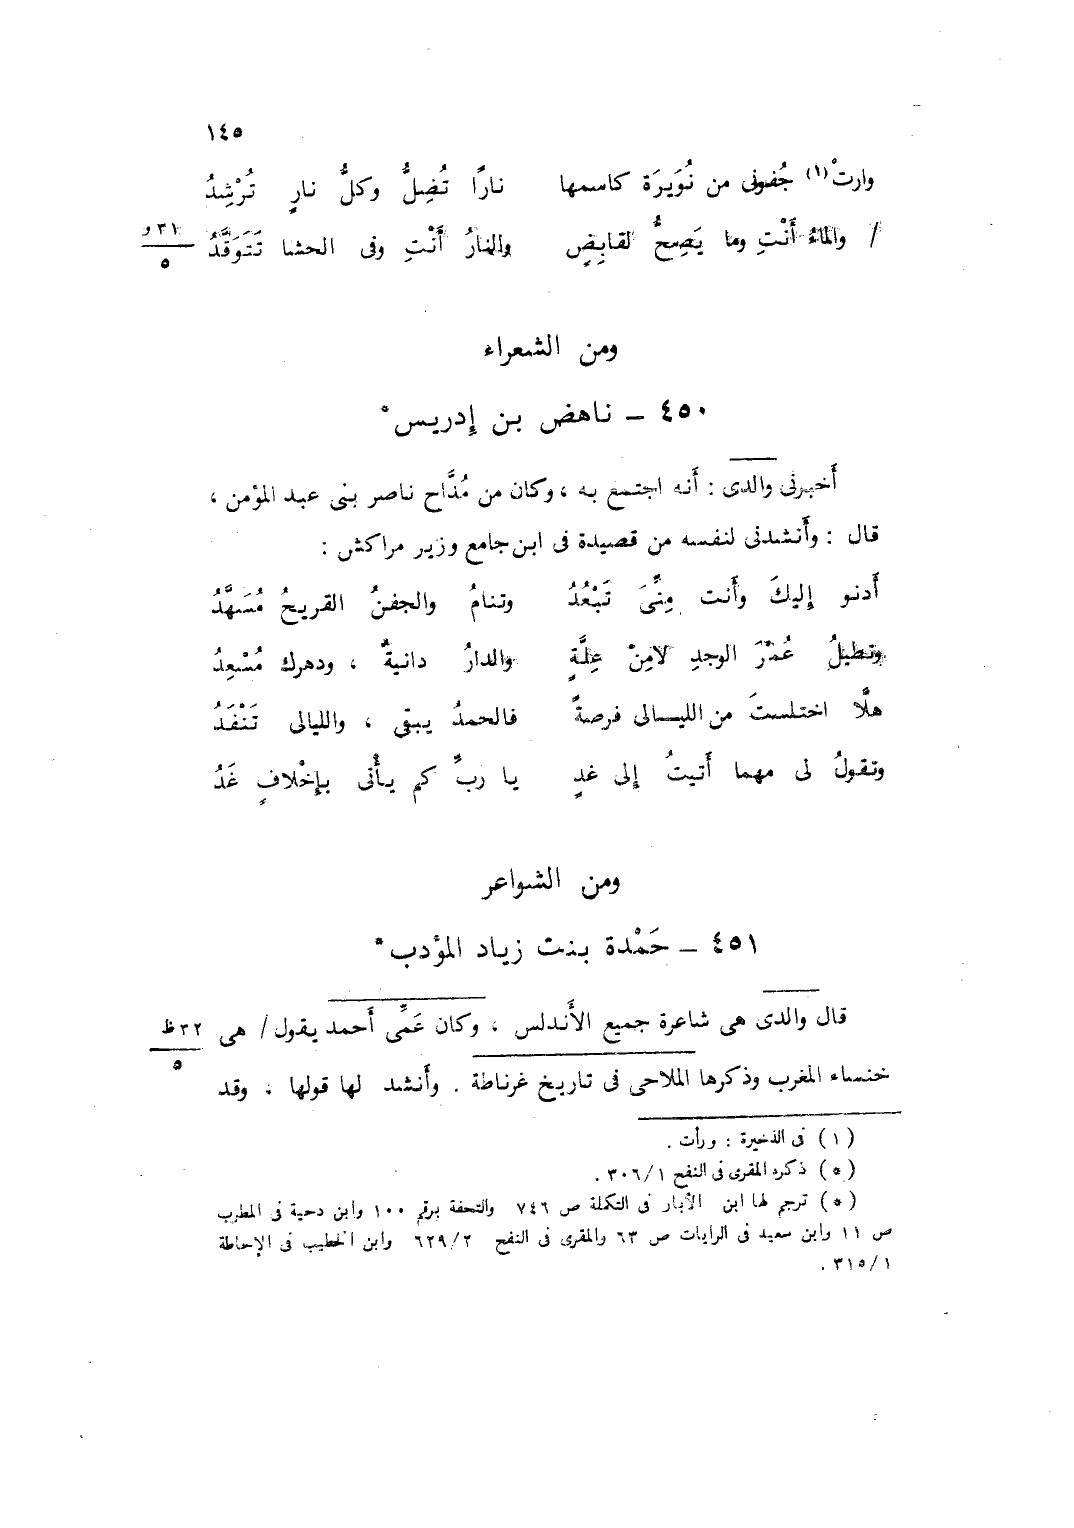 ١٤٥
وارتْ (١) جُفونى من نُوَيرَة كاسمها نارًا تُضِلُّ وكلُّ نارٍ تُرْشِدُ
/ والماءُ أَنْتِ وما يَصِحُّ لقابِضٍ والنارُ أَنْتِ وفى الحشا تَتَوَقَّدُ
٣١ و
٥
ومن الشعراء
٤٥٠ – ناهض بن إدريس*
أَخبرنى والدى : أَنه اجتمع به ، وكان من مُدَّاح ناصر بنى عبد المؤمن ،
قال : وأَنشدنى لنفسه من قصيدة فى ابن جامع وزير مراكش :
أَدنو إِليكَ وأَنت مِنِّىَ تَبْعُدُ وتنامُ والجفنُ القريحُ مُسَهَّدُ
وتطيلُ عُمْرَ الوجدِ لامِنْ عِلَّةٍ والدارُ دانيةٌ ، ودهرك مُسْعِدُ
هلَّا اختلستَ من الليالى فرصةً فالحمدُ يبقى ، والليالى تَنْفَدُ
وتقولُ لى مهما أَتيتُ إِلى غدٍ يا ربِّ كم يأْتى بإِخْلافٍ غَدُ
ومن الشواعر
٤٥١ – حَمْدة بنت زياد المؤدب*
قال والدى هى شاعرة جميع الأَندلس ، وكان عَمِّى أَحمد يقول / هى
٣٢ ظ
٥
خنساء المغرب وذكرها الملاحى فى تاريخ غرناطة . وأَنشد لها قولها ، وقد
(١) فى الذخيرة : ورأت .
(*) ذكره المقرى فى النفح ٣٠٦/١ .
(*) ترجم لها ابن الأبار فى التكملة ص ٧٤٦ والتحفة برقم ١٠٠ وابن دحية فى المطرب
ص ١١ وابن سعيد فى الرايات ص ٦٣ والمقرى فى النفح ٦٢٩/٢ وابن الخطيب فى الإحاطة
٣١٥/١ .